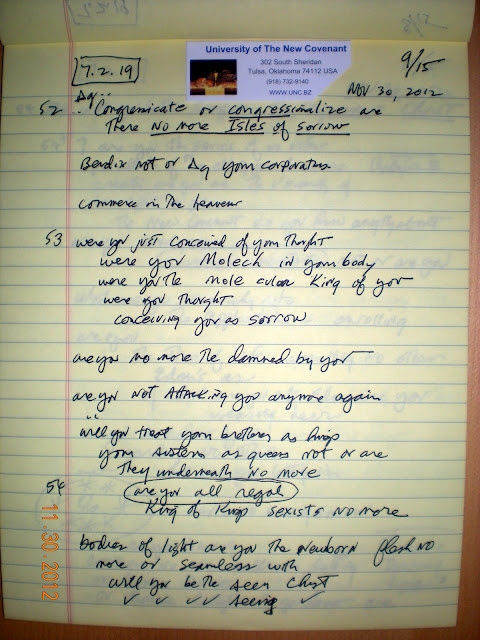 7.2.19
University of The New Covenant
302 South Sheridan
Tulsa, Oklahoma 74112 USA
(918) 732-9140
WWW.UNC.BZ
9/15
Nov 30, 2012
52 Congressionalize are
There No More Isles of sorrow
not or your
commerce in the heavens
53 were you just conceived of your thought
were you Molech in your body
were you the mole cular King of you
were you thought
conceiving you as sorrow
are you no more the damned by you
are you not Attacking you anymore again
will you treat your brothers as kings
your sisters as queens not or are
They underneath no more
54 are you all regal
King of Kings sexists no more
bodies of light are you the newborn flesh no
more or seamless with
will you be the seen Christ
✓ ✓ ✓✓ seeing ✓
11.30.2012